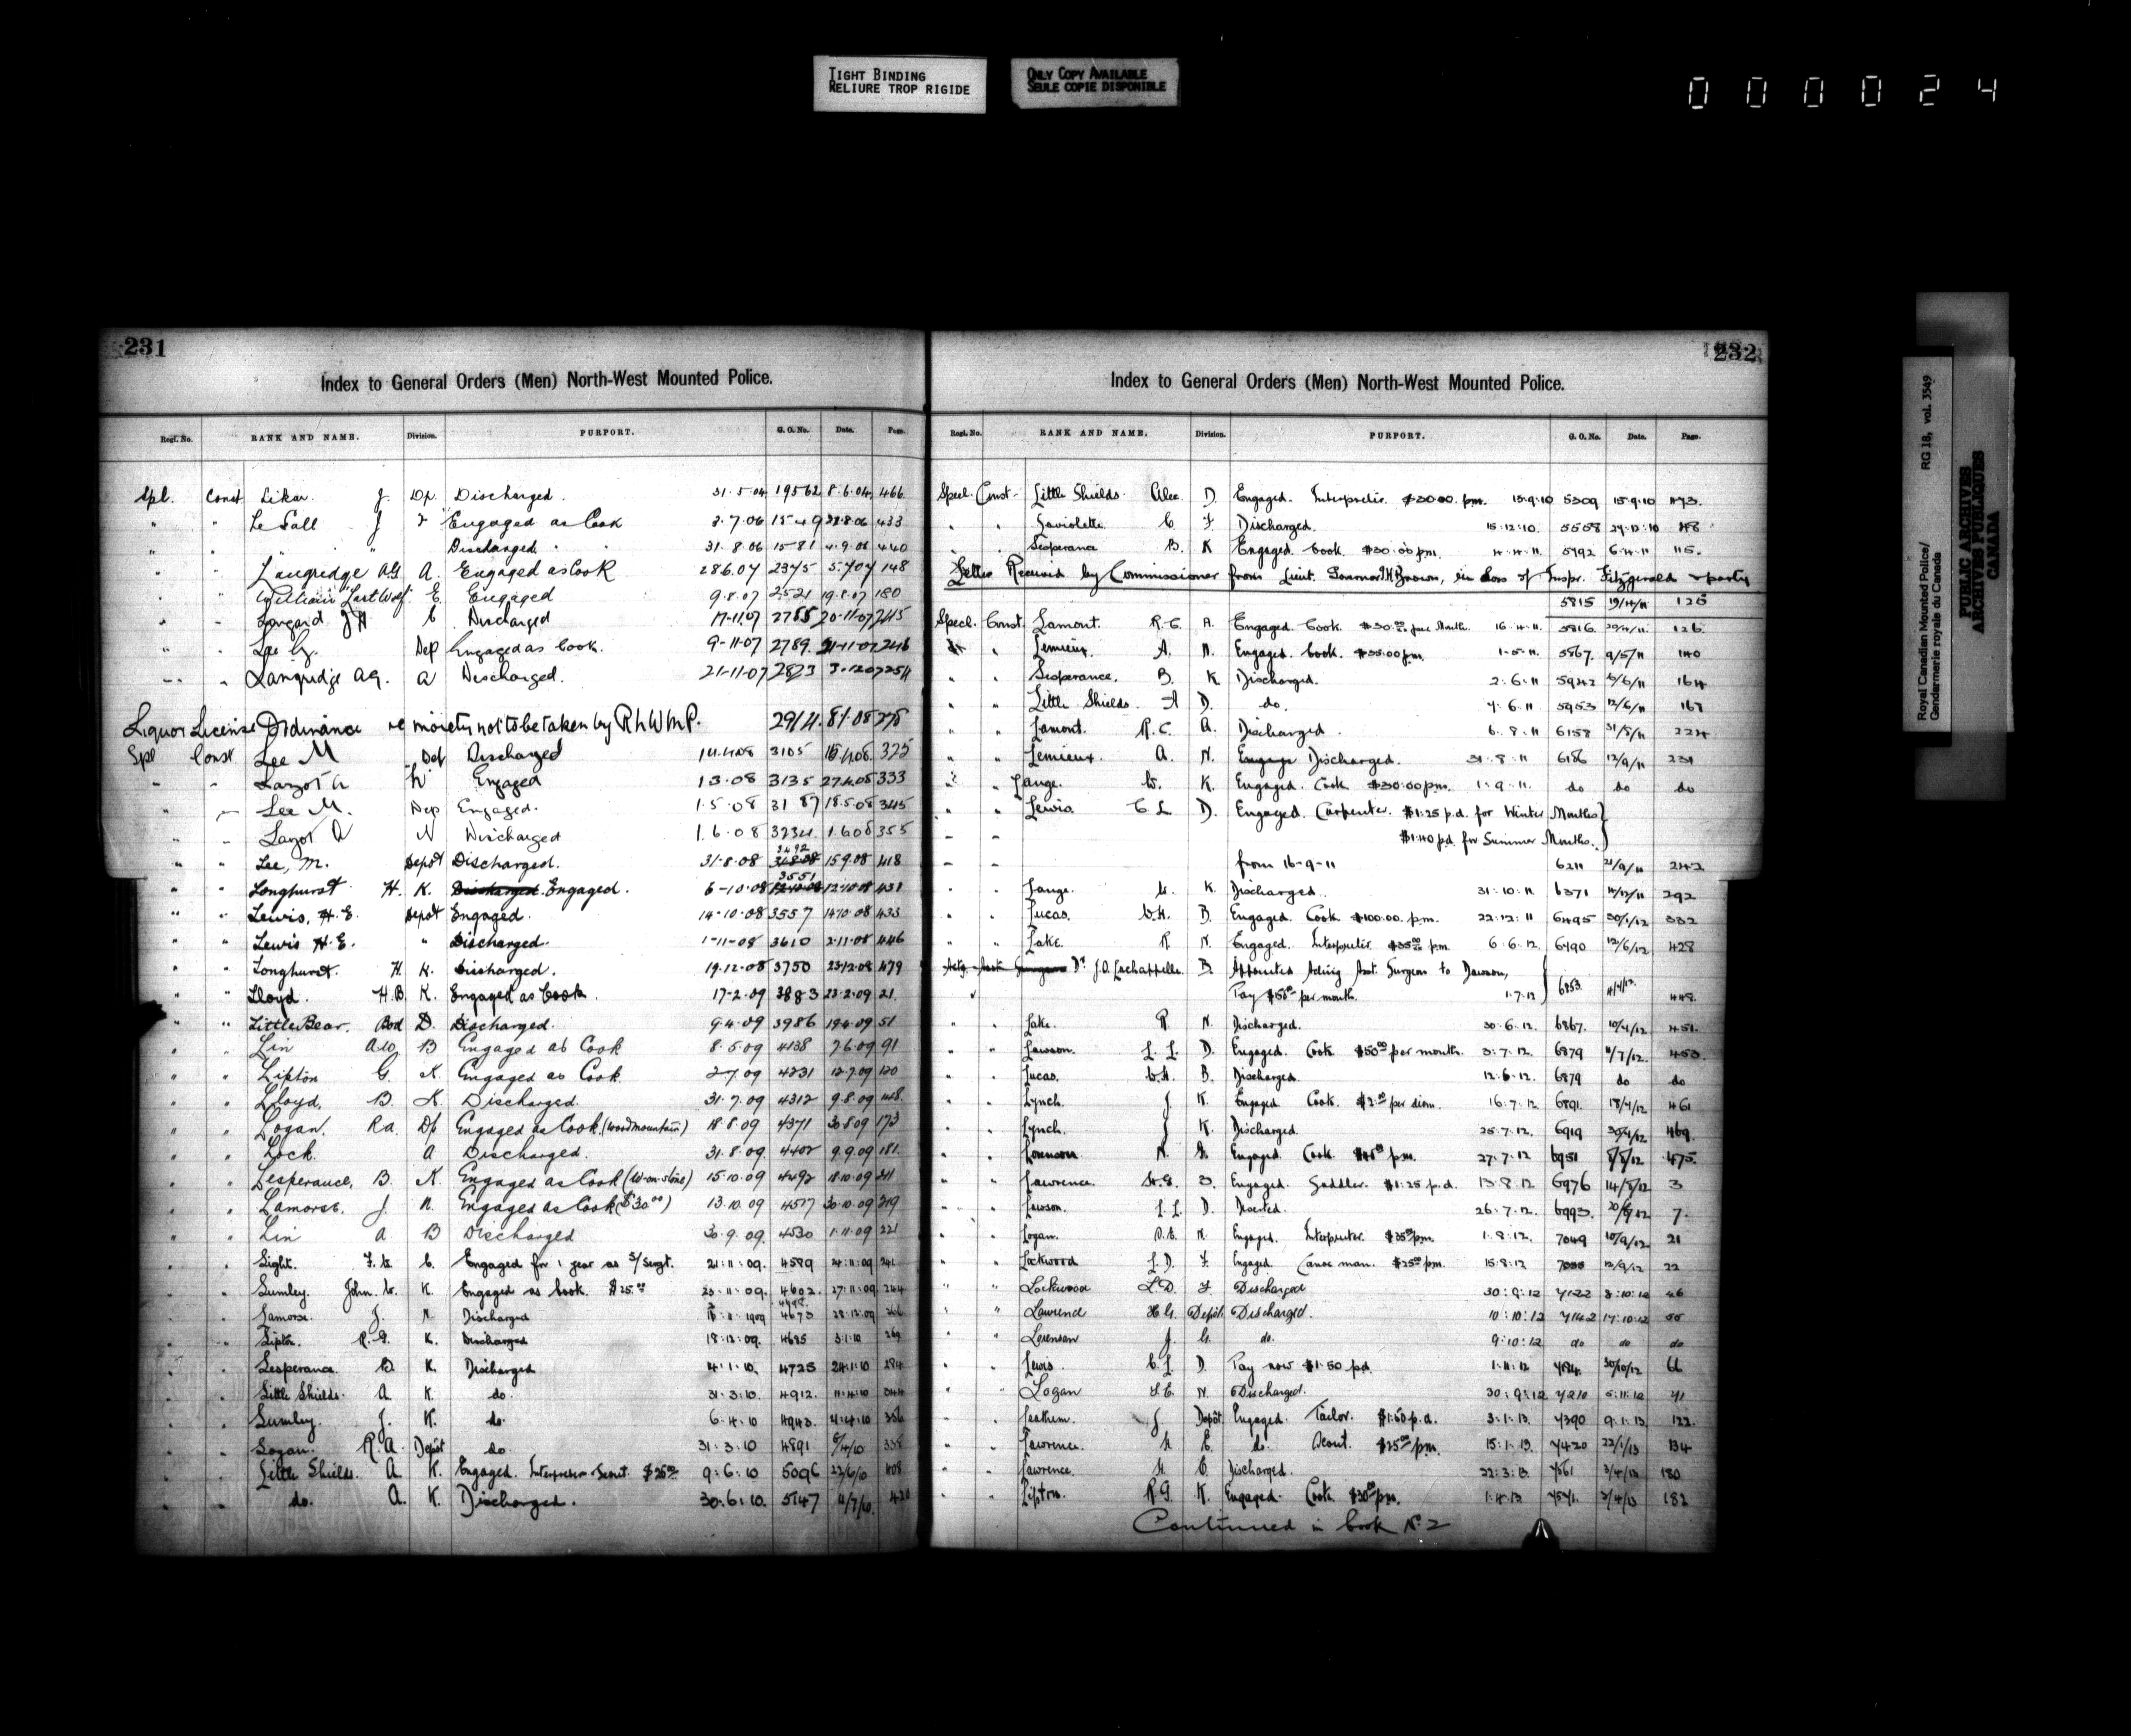 TIGHT BINDING
RELIURE TROP RIGIDE
ONLY COPY AVAILABLE
SEULE COPIE DISPONIBLE
000024
231
Index to General Orders (Men) North-West Mounted Police.
Regl. No. RANK AND NAME. Division. PURPORT. G. O. No. Date. Page.
Spl. Const Likar. J. Dp. Discharged. 31.5.04 19562 8.6.04 466
" " J Engaged as Cook 433
" " " " Discharged. 31.8.06 1581 4.9.06 440
" " Langridge AG A. Engaged as Cook 28.6.07 2375 5.7.07 148
" " William "Last Wolf" E. Engaged 9.8.07 2521 19.8.07 180
" " C Discharged 17-11.07 2755 20-11-07 245
" " Lee G. Dep Engaged as Cook. 9-11-07 2789 21-11-07 246
" " Langridge AG. A Discharged. 21-11-07 2823 3-12-07 254
Liquor License Ordinance re moiety not to be taken by R N W M P. 2914. 8.1.08 275
Spl Const Lee M Dep Discharged 14.4.08 3105 325
" " N Engaged 1.3.08 3135 27.4.08 333
" " Lee M. Dep Engaged. 1.5.08 3187 18.5.08 345
" " A N Discharged 1.6.08 3234 1.6.08 355
" " Lee, M. Depot Discharged. 31.8.08 3492 15.9.08 418
" " Longhurst H. K. Discharged. Engaged. 6-10.08 3551 12.10.08 431
" " Lewis, H.E. Depot Engaged. 14.10.08 3557 14.10.08 433
" " Lewis H.E. " Discharged. 1-11-08 3610 2.11.08 446
" " Longhurst. H. K. Discharged. 19.12.08 3750 23.12.08 479
" " Lloyd. H.B. K. Engaged as Cook. 17-2.09 3883 23.2.09 21.
" " Little Bear. Bod D. Discharged. 9.4.09 3986 19.4.09 51
" " Lin B Engaged as Cook 8.5.09 4138 7.6.09 91
" " Lipton G. K. Engaged as Cook. 2.7.09 4231 12.7.09 120
" " Lloyd, B. K. Discharged. 31.7.09 4312 9.8.09 148
" " Logan, Ra. Dp Engaged as Cook (Woodmountain) 18.8.09 4371 30.8.09 173
" " Lock. A Discharged. 31.8.09. 4402 9.9.09 181.
" " Lesperance, B. K. Engaged as Cook (W-on-stone) 15.10.09 4492 18.10.09 211
" " Lamorse, J. N. Engaged as Cook ($30.00) 13.10.09 4517 30.10.09 219
" " Lin A. B Discharged 30.9.09. 4530 1.11.09 221
" " Light. F.W. C. Engaged for 1 year as S/Sergt. 21:11:09. 4589 24:11:09 241
" " Lumley. John. W. K. Engaged as Cook. $25.00 23:11:09. 4602. 27:11:09. 244
" " Lamorse. J. N. Discharged 4673 28:12:09
" " Lipton. R.G. K. Discharged 18:12:09. 4685 3:1:10 269
" " Lesperance. B. K. Discharged 4:1:10. 4725 24:1:10 284
" " Little Shields. A. K. do. 31:3:10. 4912. 11:4:10 344
" " Lumley. J. K. do. 6:4:10 4943.
" " Logan. R.A. Depôt do 31:3:10 4891 338
" " Little Shields. A. K. Engaged. Interpreter & Scout. $25.00 9:6:10 5096 22/6/10 408
" " do. A. K. Discharged. 30:6:10. 5147 11/7/10.
232
Index to General Orders (Men) North-West Mounted Police.
Regl. No. RANK AND NAME. Division. PURPORT. G. O. No. Date. Page.
Specl. Const. Little Shields. Alec. D. Engaged. Interpreter. $30.00. p.m. 15.9.10 5309 15.9.10 473.
" " Laviolette. C F. Discharged. 15:12:10. 5558 27:12:10
" " Lesperance B. K Engaged. Cook. $30.00 p.m. 4.4.11. 5792 6.4.11 115.
Letter Received by Commissioner from Lieut. Governor Brown, in loss of Inspr. Fitzgerald & party
5815 19/4/11 125
Specl. Const. Lamont. R.C. A. Engaged. Cook. $30.00 per Month. 16.4.11. 5816 29/4/11. 126.
" " Lemieux. A. N. Engaged. Cook. $35.00 p.m. 1.5.11. 5867. 9/5/11 140
" " Lesperance. B. K Discharged. 2.6.11 5942 6/6/11 164
" " Little Shields. A D. do. 7.6.11 5953 12/6/11 167
" " Lamont. R.C. A. Discharged. 6.8.11 6158 31/8/11 224
" " Lemieux. A. N. Engage Discharged. 31.8.11 6186 12/9/11 231
" " Lange. W. K. Engaged. Cook $30.00 p.m. 1.9.11. do do do
" " Lewis. C L D. Engaged. Carpenter. $1.25 p.d. for Winter Months
" " $1.40 p.d. for Summer Months.
" " from 16-9-11 6211 21/9/11 242
" " Lange. W. K. Discharged. 31:10:11. 6371 292
" " Lucas. W.H. B. Engaged. Cook $100.00. p.m. 22:12:11 6495 30/1/12 332
" " Lake. R N. Engaged. Interpreter. $35.00 p.m. 6.6.12. 6790 12/6/12 428
Actg. Asst. Surgeon Dr. J.O. Lachappelle. B. Appointed Acting Asst. Surgeon to Dawson,
Pay $50.00 per month. 1.7.12 6853. 448.
" " Lake. R. N. Discharged. 30.6.12. 6867. 10/7/12 451.
" " Lawson. L. L. D. Engaged. Cook $50.00 per month. 3.7.12. 6879 11/7/12. 453
" " Lucas. W.H. B. Discharged. 12.6.12. 6879 do do
" " Lynch. J. K. Engaged. Cook. $2.00 per diem. 16.7.12. 6891. 18/7/12 461
" " Lynch. J K. Discharged. 25.7.12. 6919 30/7/12 469.
" " Engaged. Cook p.m. 27.7.12 6951 8/8/12 475.
" " Lawrence. H.G. Engaged. Saddler. $1.25 p.d. 13.8.12 6976 14/8/12 3
" " Lawson. L.L. D. Deserted. 26.7.12. 6993. 7.
" " Logan. N. Engaged. Interpreter. $35.00 p.m. 1.8.12. 7049 10/9/12 21
" " Lockwood L.D. F. Engaged. Canoe man. $25.00 p.m. 15.8.12 12/9/12 22
" " Lockwood L.D. F Discharged 30:9:12 7122 8:10:12 46
" " Lawrend H.G. Depôt Discharged. 10:10:12 7142 17:10:12 55
" " Lorenson J. G. do. 9:10:12 do do do
" " Lewis. C.L. D. Pay now $1.50 p.d. 1:11:12 7184. 30/10/12 66
" " Logan N. Discharged. 30:9:12 7210 5:11:12 71
" " J. Depôt Engaged. Tailor. $1.50 p.d. 3:1:13. 7390 9:1:13. 122.
" " Lawrence. H E. do. Scout. $25.00 p.m. 15:1:13. 7420 22/1/13 134
" " Lawrence. H. E. Discharged. 22:3:13. 7561 3/4/13 180
" " Lipton. R.G. K. Engaged. Cook. $30.00 p.m. 1.4.13 7571. 3/4/13 182
Continued in book No. 2
Royal Canadian Mounted Police/
Gendarmerie royale du Canada
RG 18, vol. 3549
PUBLIC ARCHIVES
ARCHIVES PUBLIQUES
CANADA